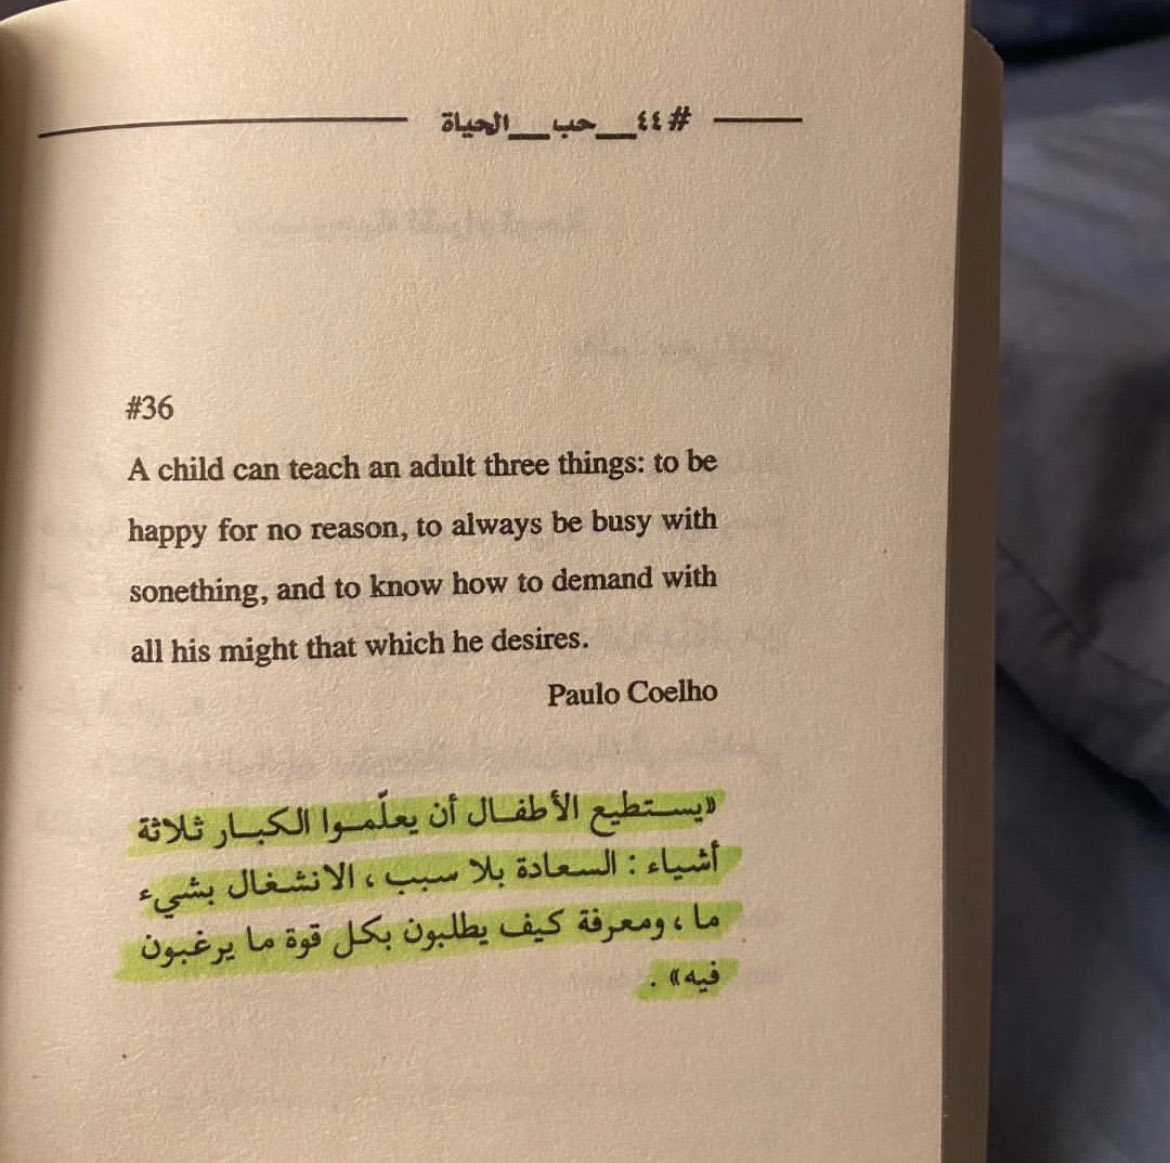 #٤٤__حب__الحياة
#36
A child can teach an adult three things: to be
happy for no reason, to always be busy with
sonething, and to know how to demand with
all his might that which he desires.
Paulo Coelho
«يستطيع الأطفال أن يعلّموا الكبار ثلاثة
أشياء : السعادة بلا سبب ، الانشغال بشيء
ما ، ومعرفة كيف يطلبون بكل قوة ما يرغبون
فيه» .